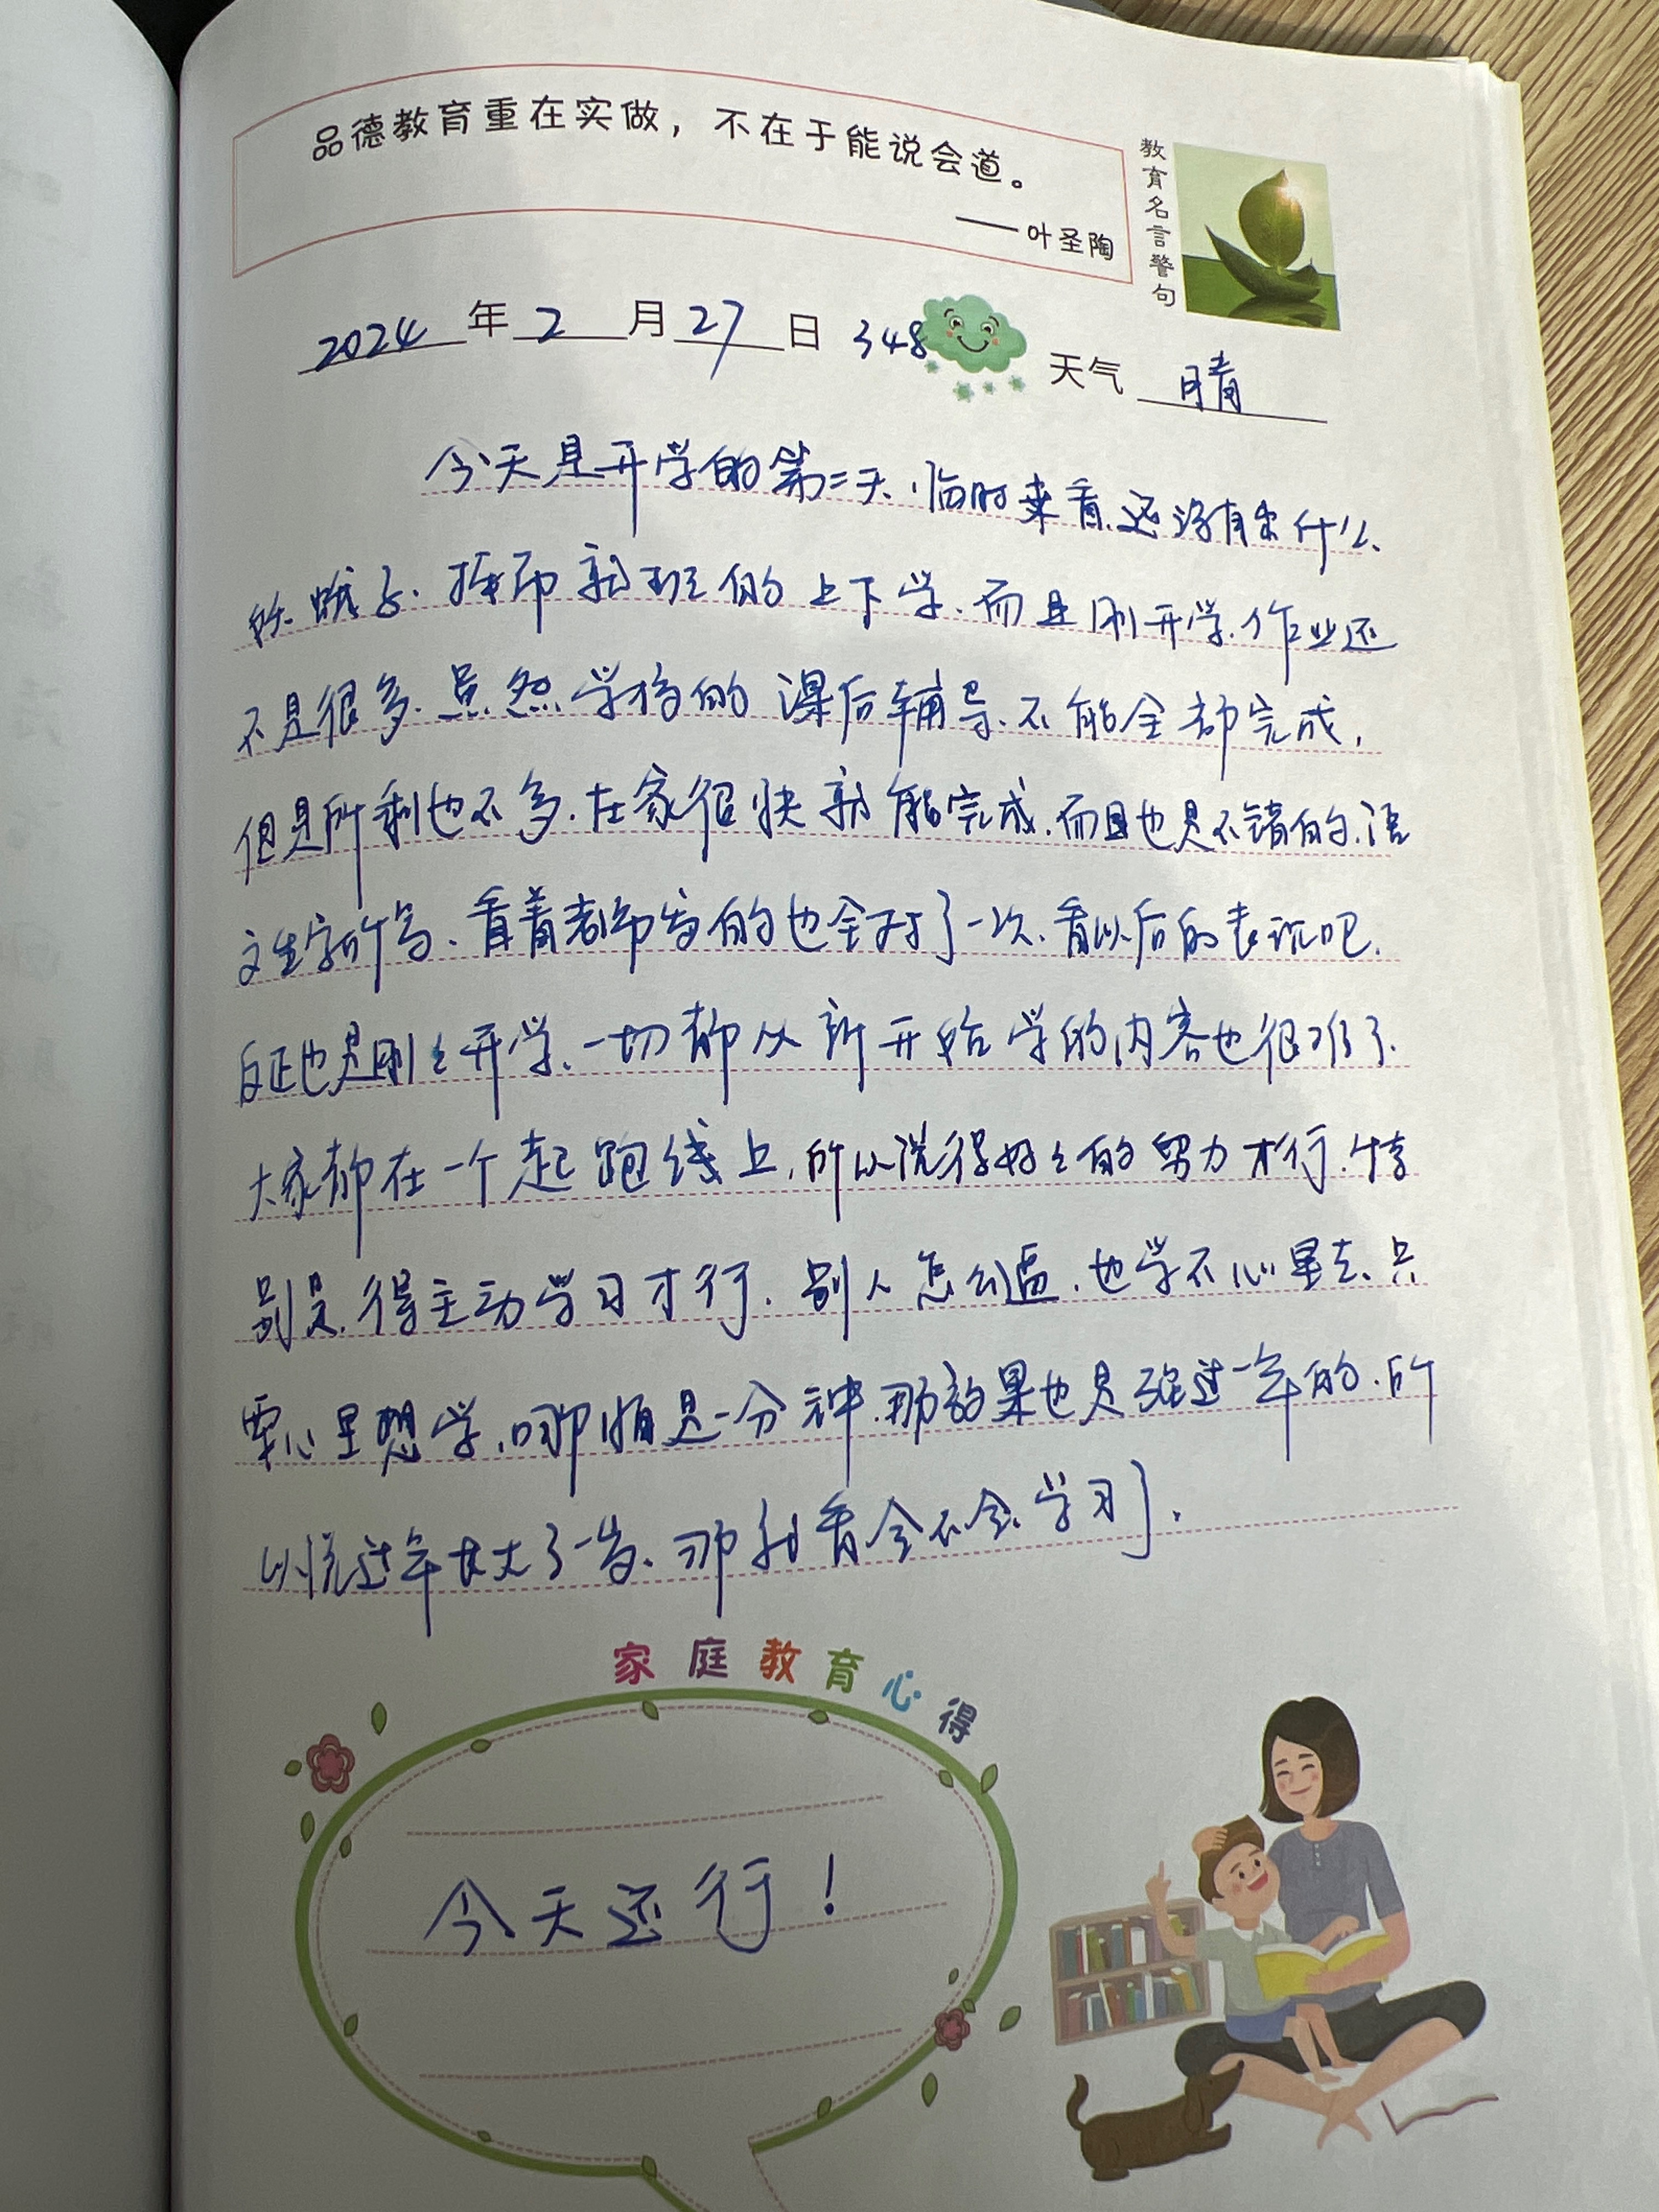 品德教育重在实做，不在于能说会道。
——叶圣陶
教育名言警句
2024年2月27日 348 天气 晴
今天是开学的第二天、临时来看、还没有出什么
蛾子、按部就班的上下学、而且刚开学、作业还
不是很多、虽然学校的课后辅导、不能全部完成，
但是所剩也不多、在家很快就能完成、而且也是不错的、语
文生字听写、看着老师发的也全对了一次、看以后的表现吧、
反正也是刚刚开学、一切都从新开始学的内容也很难了、
大家都在一个起跑线上，所以说得好好的努力才行、特
别是、得主动学习才行、别人怎么逼、也学不心里去、只
要心里想学、哪怕是一分钟、那效果也是强过一年的、所
以说过年长大了一岁、那就看会不会学习了、
家庭教育心得
今天还行！